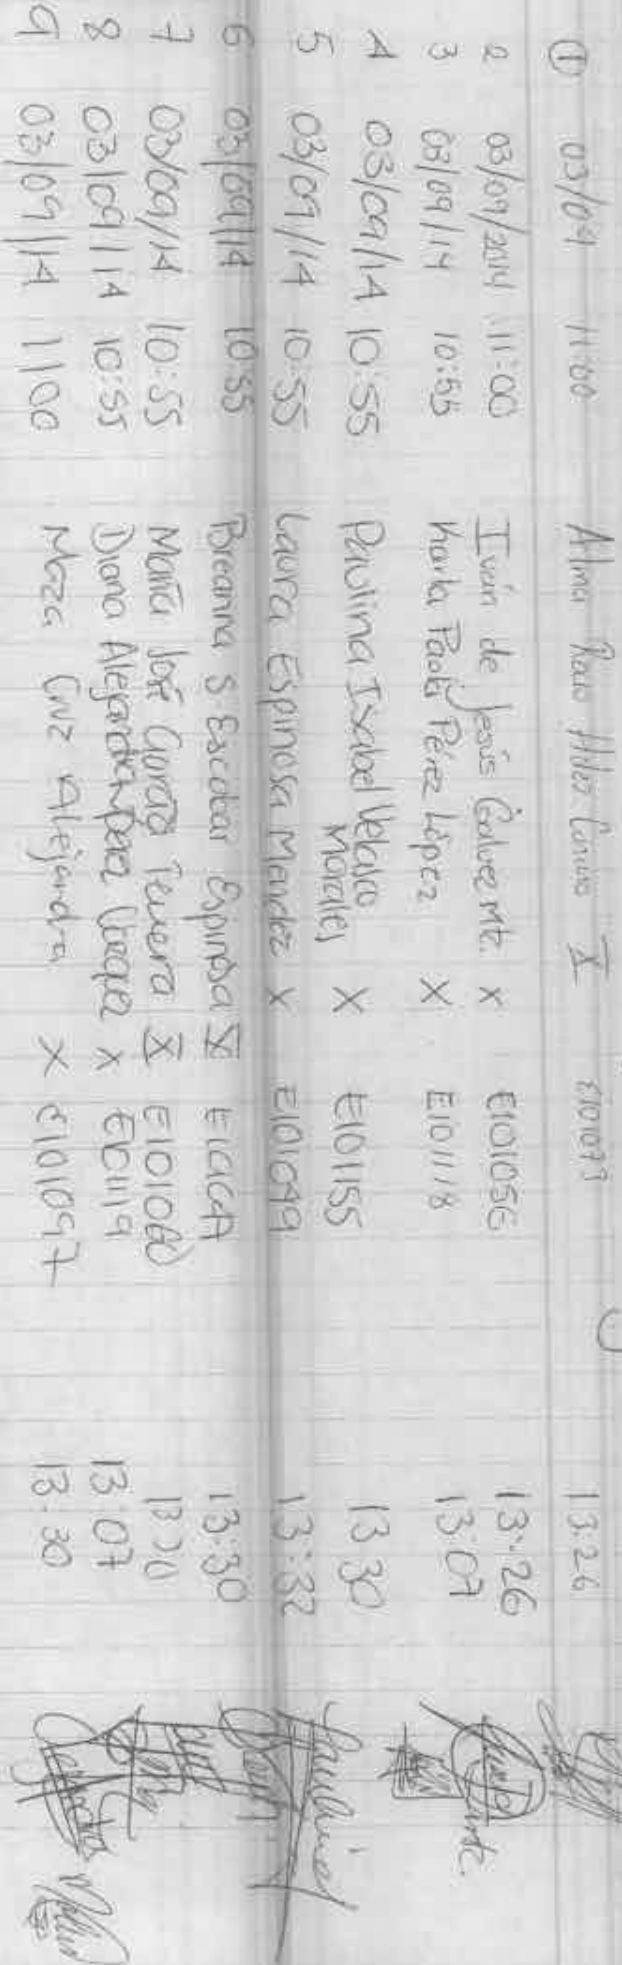 ① 03/09 11:00 Alma Hdez X E101073 13:26
2 03/09/2014 11:00 Iván de Jesús Galvez Mtz. X E101056 13:26
3 03/09/14 10:55 Karla Paola Pérez López X E101118 13:07
4 03/09/14 10:55 Paulina Isabel Velasco Morales X E101155 13 30
5 03/09/14 10:55 Laura Espinosa Mendez X E101049 13:32
6 03/09/14 10:55 Breanna S Escobar Espinosa X 13:30
7 03/09/14 10:55 María José X E101060
8 03/09/14 10:55 Diana Alejandra Perez X E101119 13:07
9 03/09/14 1100 Meza Cruz Alejandra X E101097 13:30